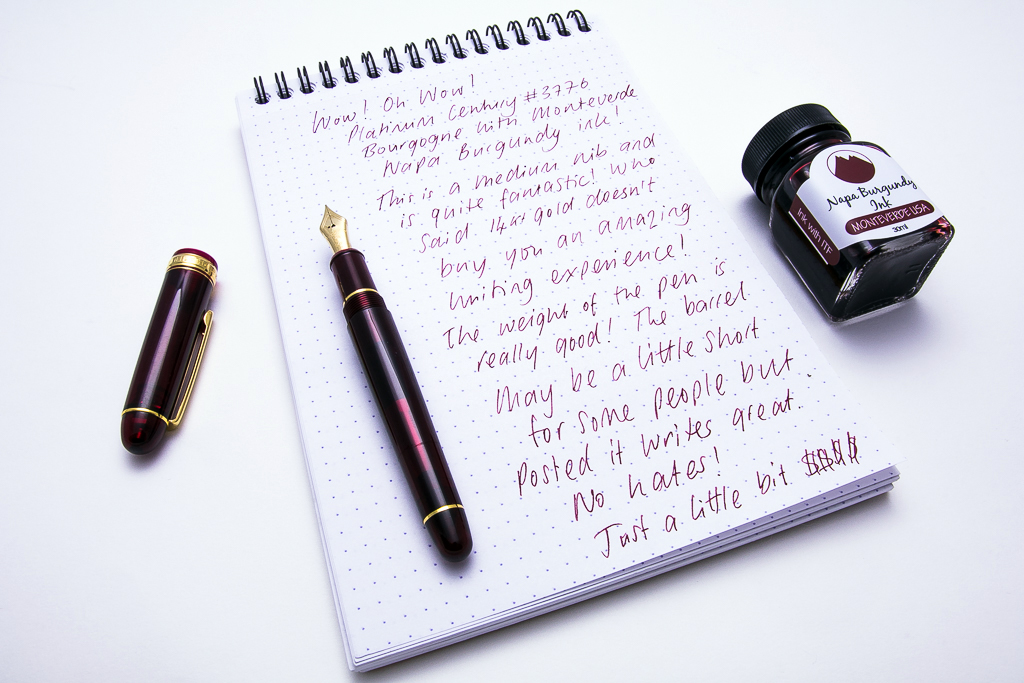 Wow! Oh Wow!
Platinum Century #3776
Bourgogne with Monteverde
Napa Burgundy ink!
This is a medium nib and
is quite fantastic! Who
said 14k gold doesn't
buy you an amazing
writing experience!
The weight of the pen is
really good! The barrel
may be a little short
for some people but
posted it writes great.
No hates!
Just a little bit $$$$
Napa Burgundy
Ink
MONTEVERDE USA
30ml
Ink with ITF